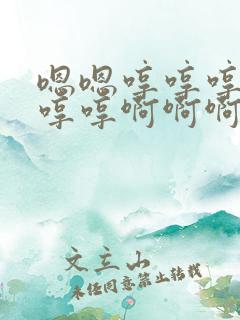 嗯嗯哼哼哼
哼哼啊啊啊
文主山
未经同意禁止转载